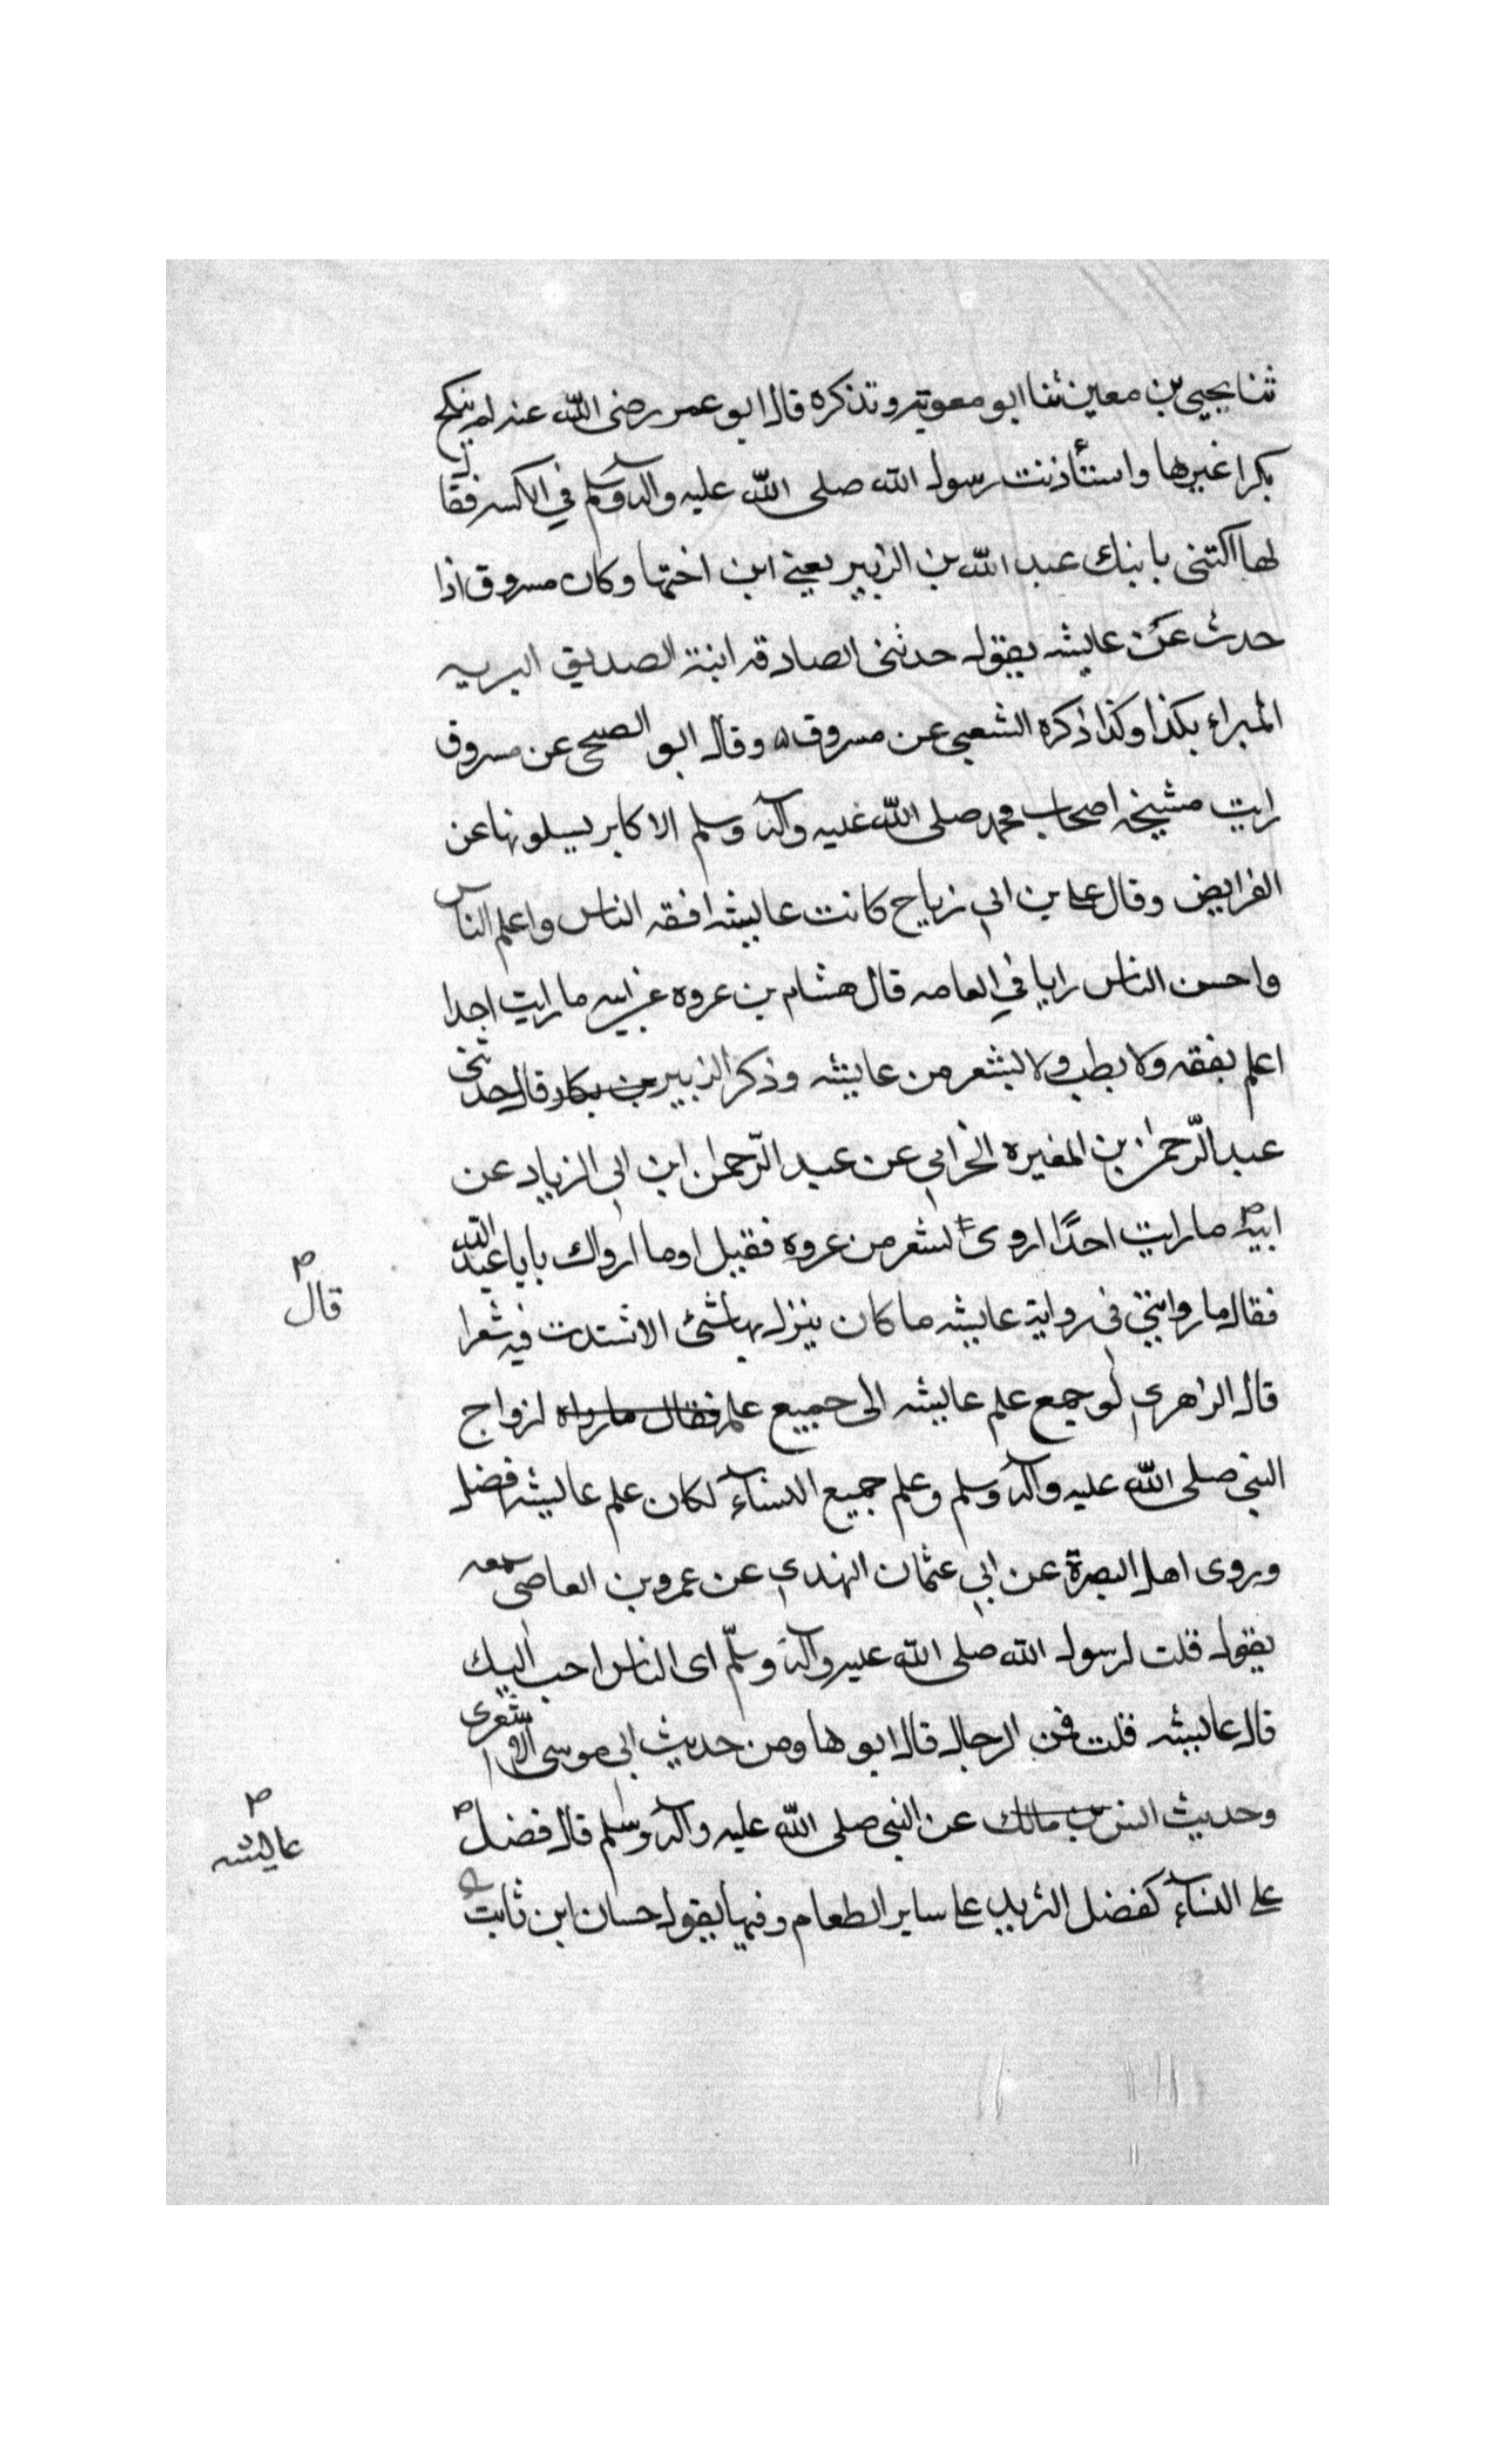 ثنا يحيى بن معين ثنا ابو معوية وتذكره قال ابو عمر رضى الله عنه لم ينكح
بكرا غيرها واستأذنت رسول الله صلى الله عليه وآله وسلم في الكسر فقال
لها اكتنى بابنك عبد الله بن الزبير يعني ابن اختها وكان مسروق اذا
حدث عن عايشه يقول حدثنى الصادقه ابنة الصديق البريه
المبراء بكذا وكذا ذكره الشعبي عن مسروق ه وقال ابو الصحى عن مسروق
رايت مشيخه اصحاب محمد صلى الله عليه وآله وسلم الاكابر يسلونها عن
الفرايض وقال عطا بن ابي زياح كانت عايشه افقه الناس واعلم الناس
واحسن الناس رايا في العامه قال هشام بن عروه عن ابيه ما رايت احدا
اعلم بفقه ولا بطب ولا بشعر من عايشه وذكر الزبير بن بكار قال حدثنى
عبد الرحمن بن المغيره الخرابي عن عبد الرحمن ابن ابي الزياد عن
ابيه ما رايت احدًا اروى لشعر من عروه فقيل اوما ارواك بابا عبد الله
قال
فقال ما روايتى فى رواية عايشه ما كان ينزل بها شئ الا اشتدت فيه شعرا
قال الزاهري لو جمع علم عايشه الى جميع علم فقال ما رواه لزواج
النبي صلى الله عليه وآله وسلم وعلم جميع النساء لكان علم عايشه افضل
وروى اهل البصرة عن ابي عثمان الهندي عن عمرو بن العاصى سمعه
يقول قلت لرسول الله صلى الله عليه وآله وسلّم اى الناس احب اليك
قال عايشه قلت فمن الرجال قال ابوها ومن حديث ابى موسى الاشعرى
وحديث انس بن مالك عن النبي صلى الله عليه وآله وسلم قال فضل
عايشه
على النساء كفضل الثريد على ساير الطعام وفيها يقول حسان ابن ثابت